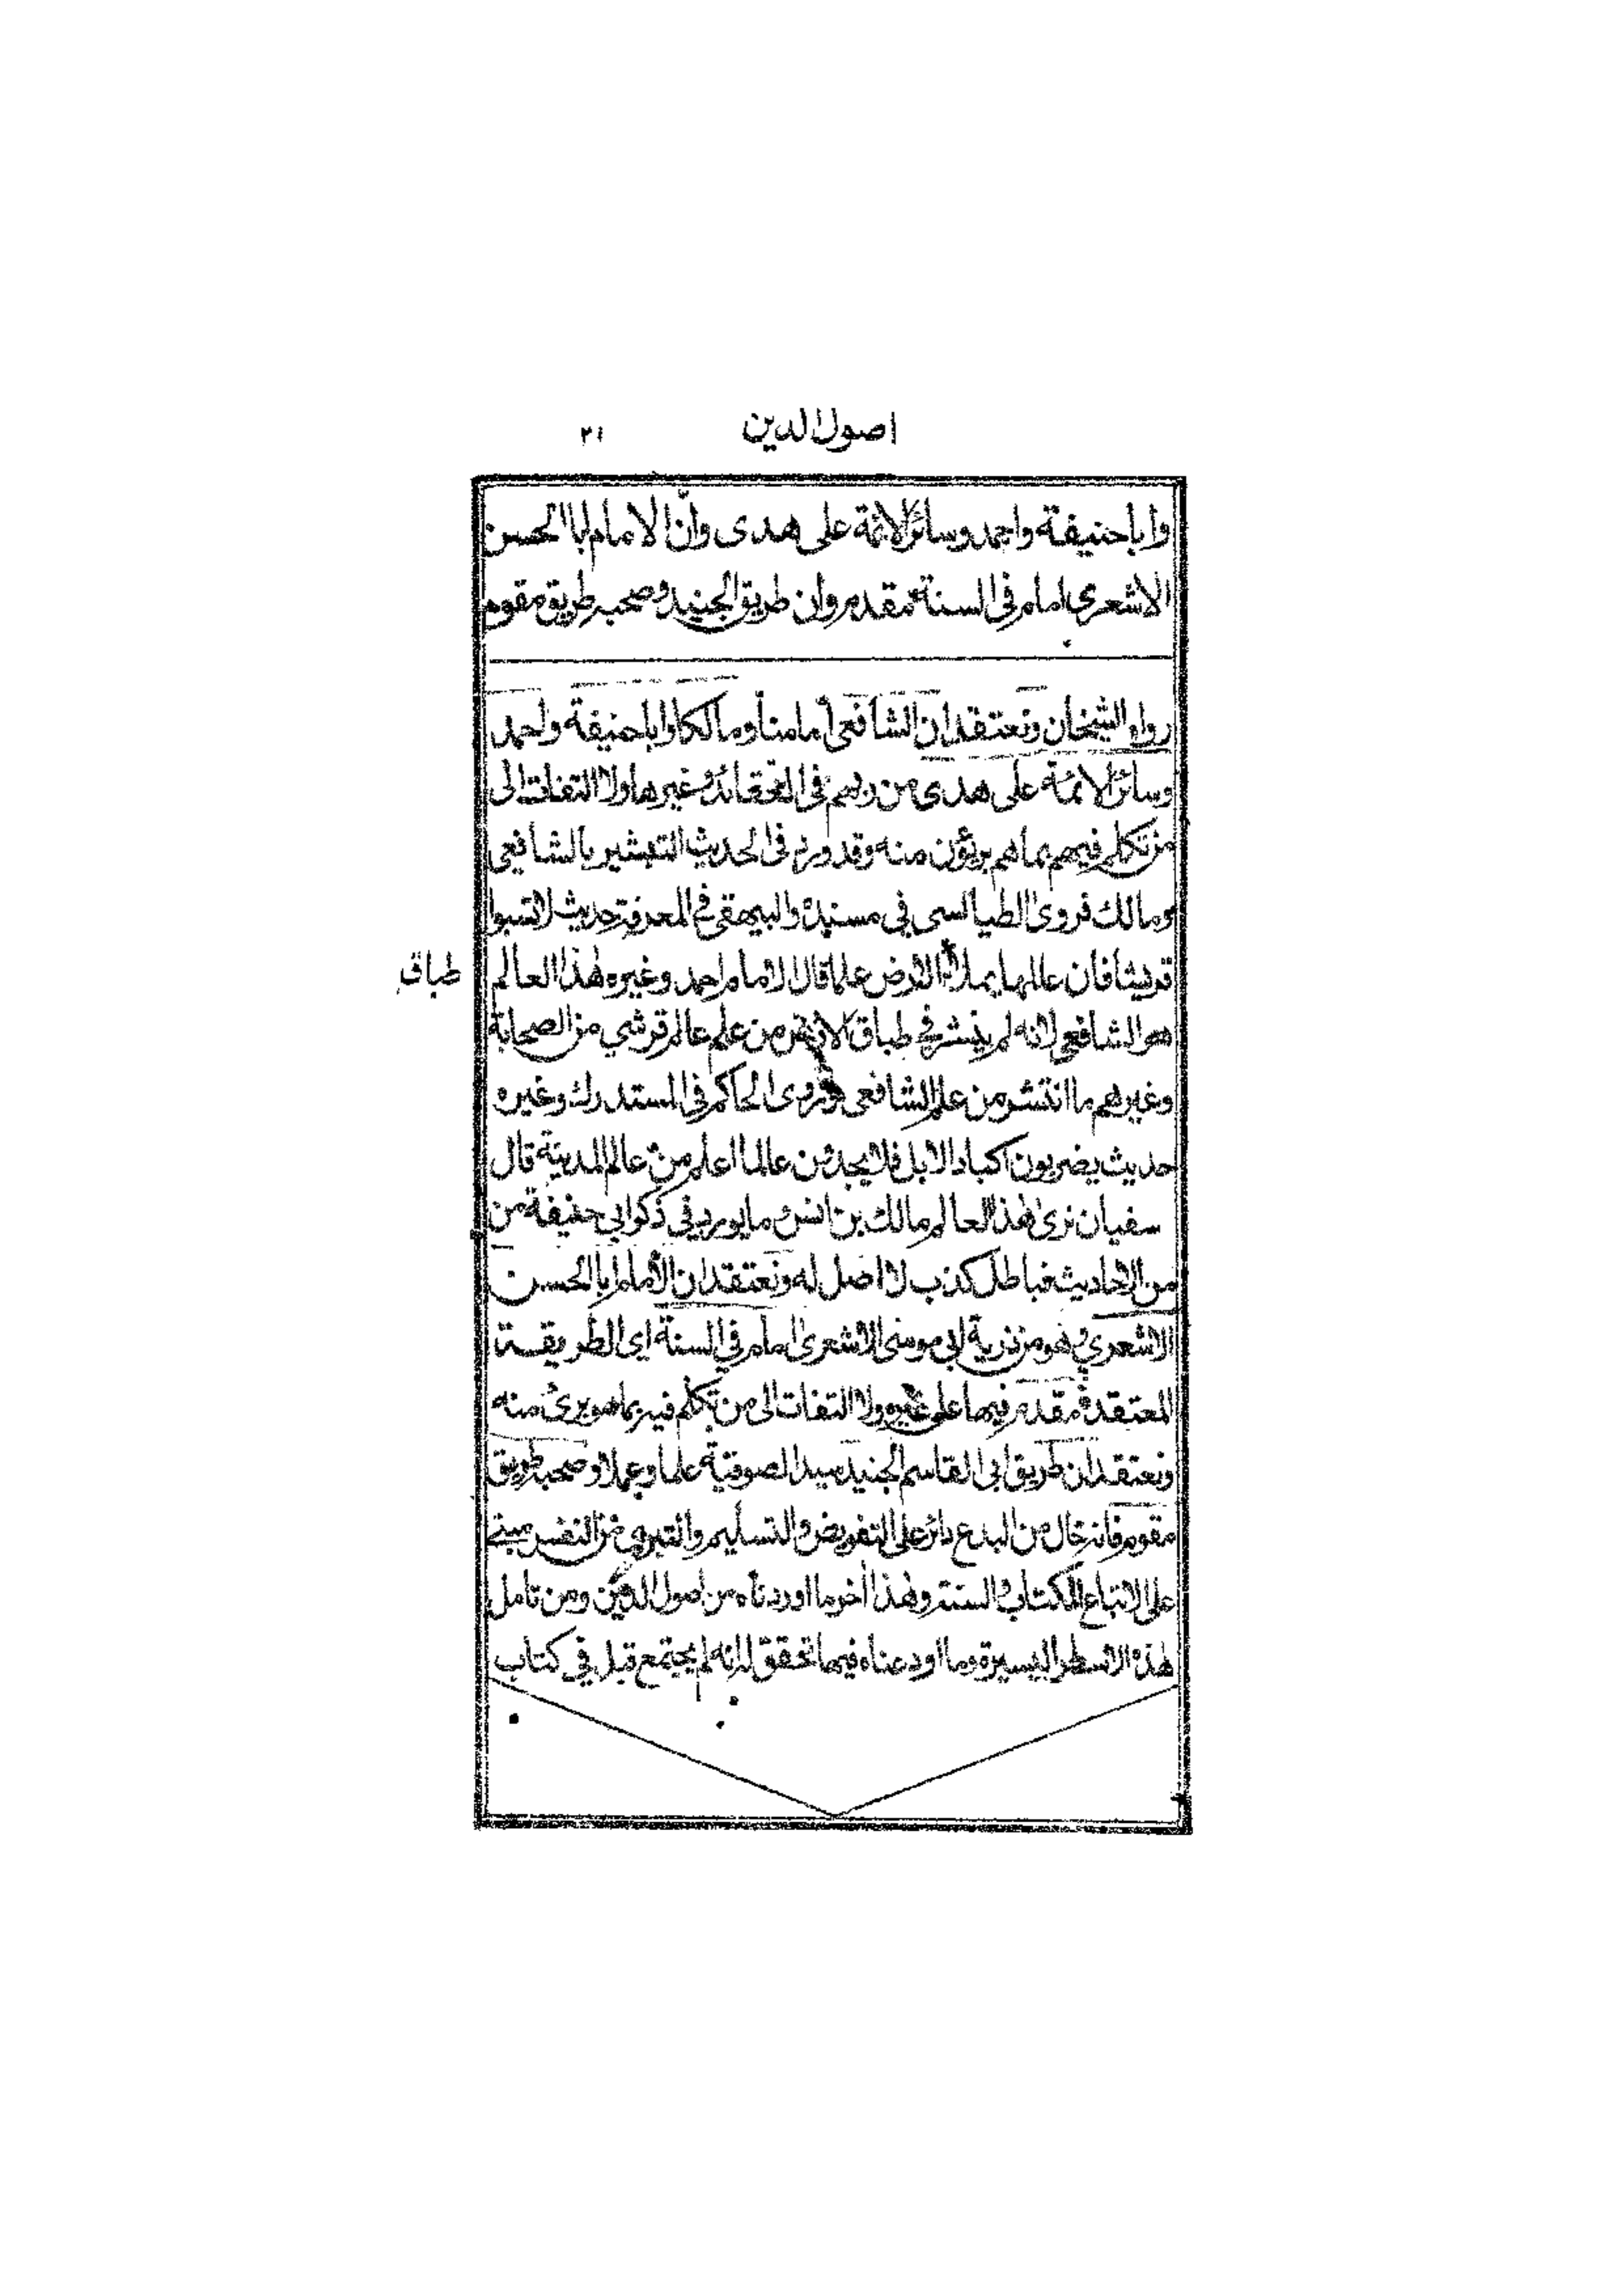 اصول الدين ٢١
وابا حنيفة واحمد وسائر الائمة على هدى وانّ الامام ابا الحسن
الاشعرى امام فى السنة مقدم وان طريق الجنيد وصحبه طريق مقوم
رواه الشيخان ونعتقد ان الشافعى امامنا ومالكا وابا حنيفة واحمد
وسائر الائمة على هدى من ربهم فى العقائد وغيرها ولا التفات الى
من تكلم فيهم بما هم بريؤن منه وقد ورد فى الحديث التبشير بالشافعى
ومالك فروى الطيالسى في مسنده والبيهقى فى المعرفة حديث لا تسبوا
قريشا فان عالمها يملأ الارض علما قال الامام احمد وغيره هذا العالم
طباق
هو الشافعى لانه لم ينتشر فى طباق الارض من علم عالم قرشي من الصحابة
وغيرهم ما انتشر من علم الشافعى وروى الحاكم فى المستدرك وغيره
حديث يضربون اكباد الابل فلا يجدون عالما اعلم من عالم المدينة قال
سفيان نرى هذا العالم مالك بن انس وما يورد في ذكر ابي حنيفة من
من الاحاديث فباطل كذب لا اصل له ونعتقد ان الامام ابا الحسن
الاشعري وهو من ذرية ابى موسى الاشعرى امام في السنة اى الطريقة
المعتقدة مقدم فيها على غيره ولا التفات الى من تكلم فيه بما هو برئ منه
ونعتقد ان طريق ابى القاسم الجنيد سيد الصوفية علما وعملا وصحبه طريق
مقوم فانه خال من البدع دائر على التفويض والتسليم والتبرى من النفس مبنى
على الاتباع للكتاب والسنة وهذا اخر ما اوردناه من اصول الدين ومن تامل
هذه الاسطر اليسيرة وما اودعناه فيها تحقق له انه لم يجتمع قبل في كتاب